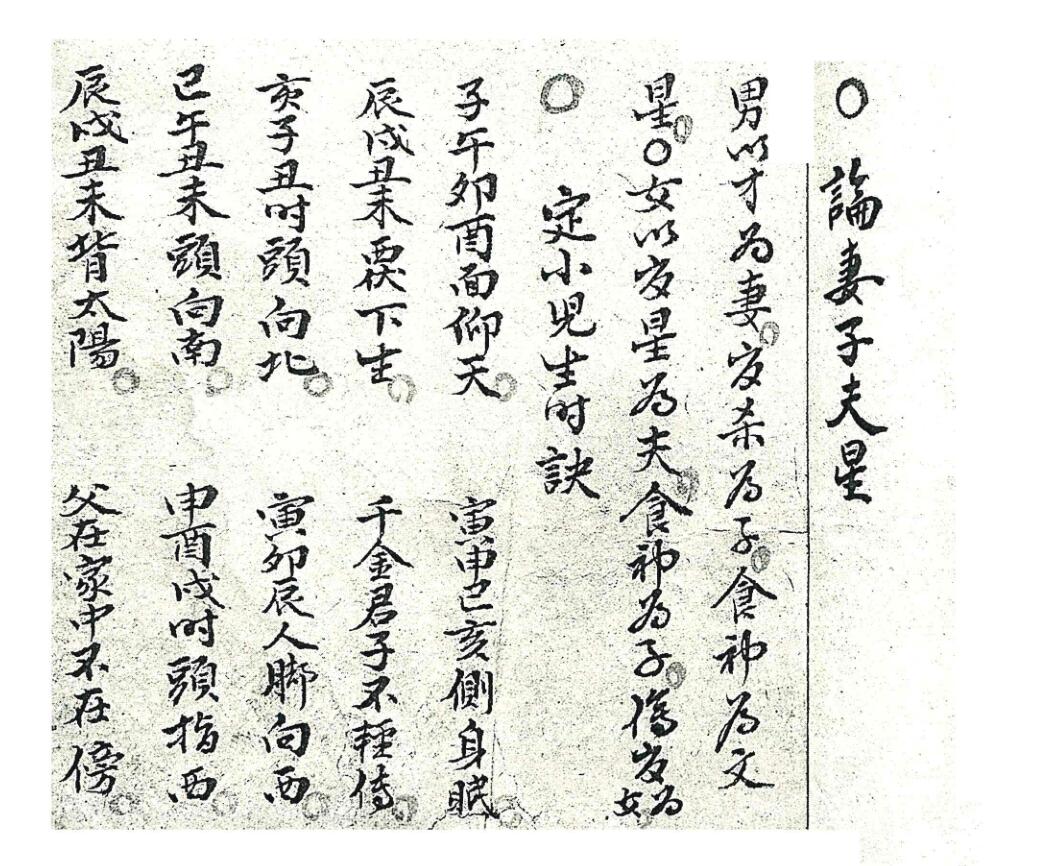 ○論妻子夫星
男以才为妻官杀为子食神为文
星○女以官星为夫食神为子傷官为女
○定小児生时訣
子午卯酉面仰天 寅申巳亥側身眠
辰戌丑未覆下生 千金君子不輕傳
亥子丑时頭向北 寅卯辰人脚向西
巳午丑未頭向南 申酉戌时頭指西
辰戌丑未背太陽 父在家中不在傍